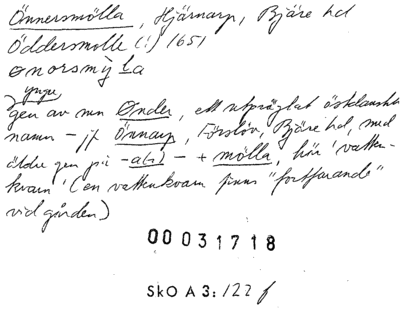 Önnersmölla, Hjärnarp, Bjäre hd
Öddersmolle (!) 1651
ønorsmỳla
yngre
gen av mn Ønder, ett utpräglat östdanskt
namn – jf Önnarp, Förslöv, Bjäre hd, med
äldre gen på -a(r) – + mölla, här 'vatten-
kvarn' (en vattenkvarn finns "fortfarande"
vid gården)
00031718
SkO A 3: 122 f